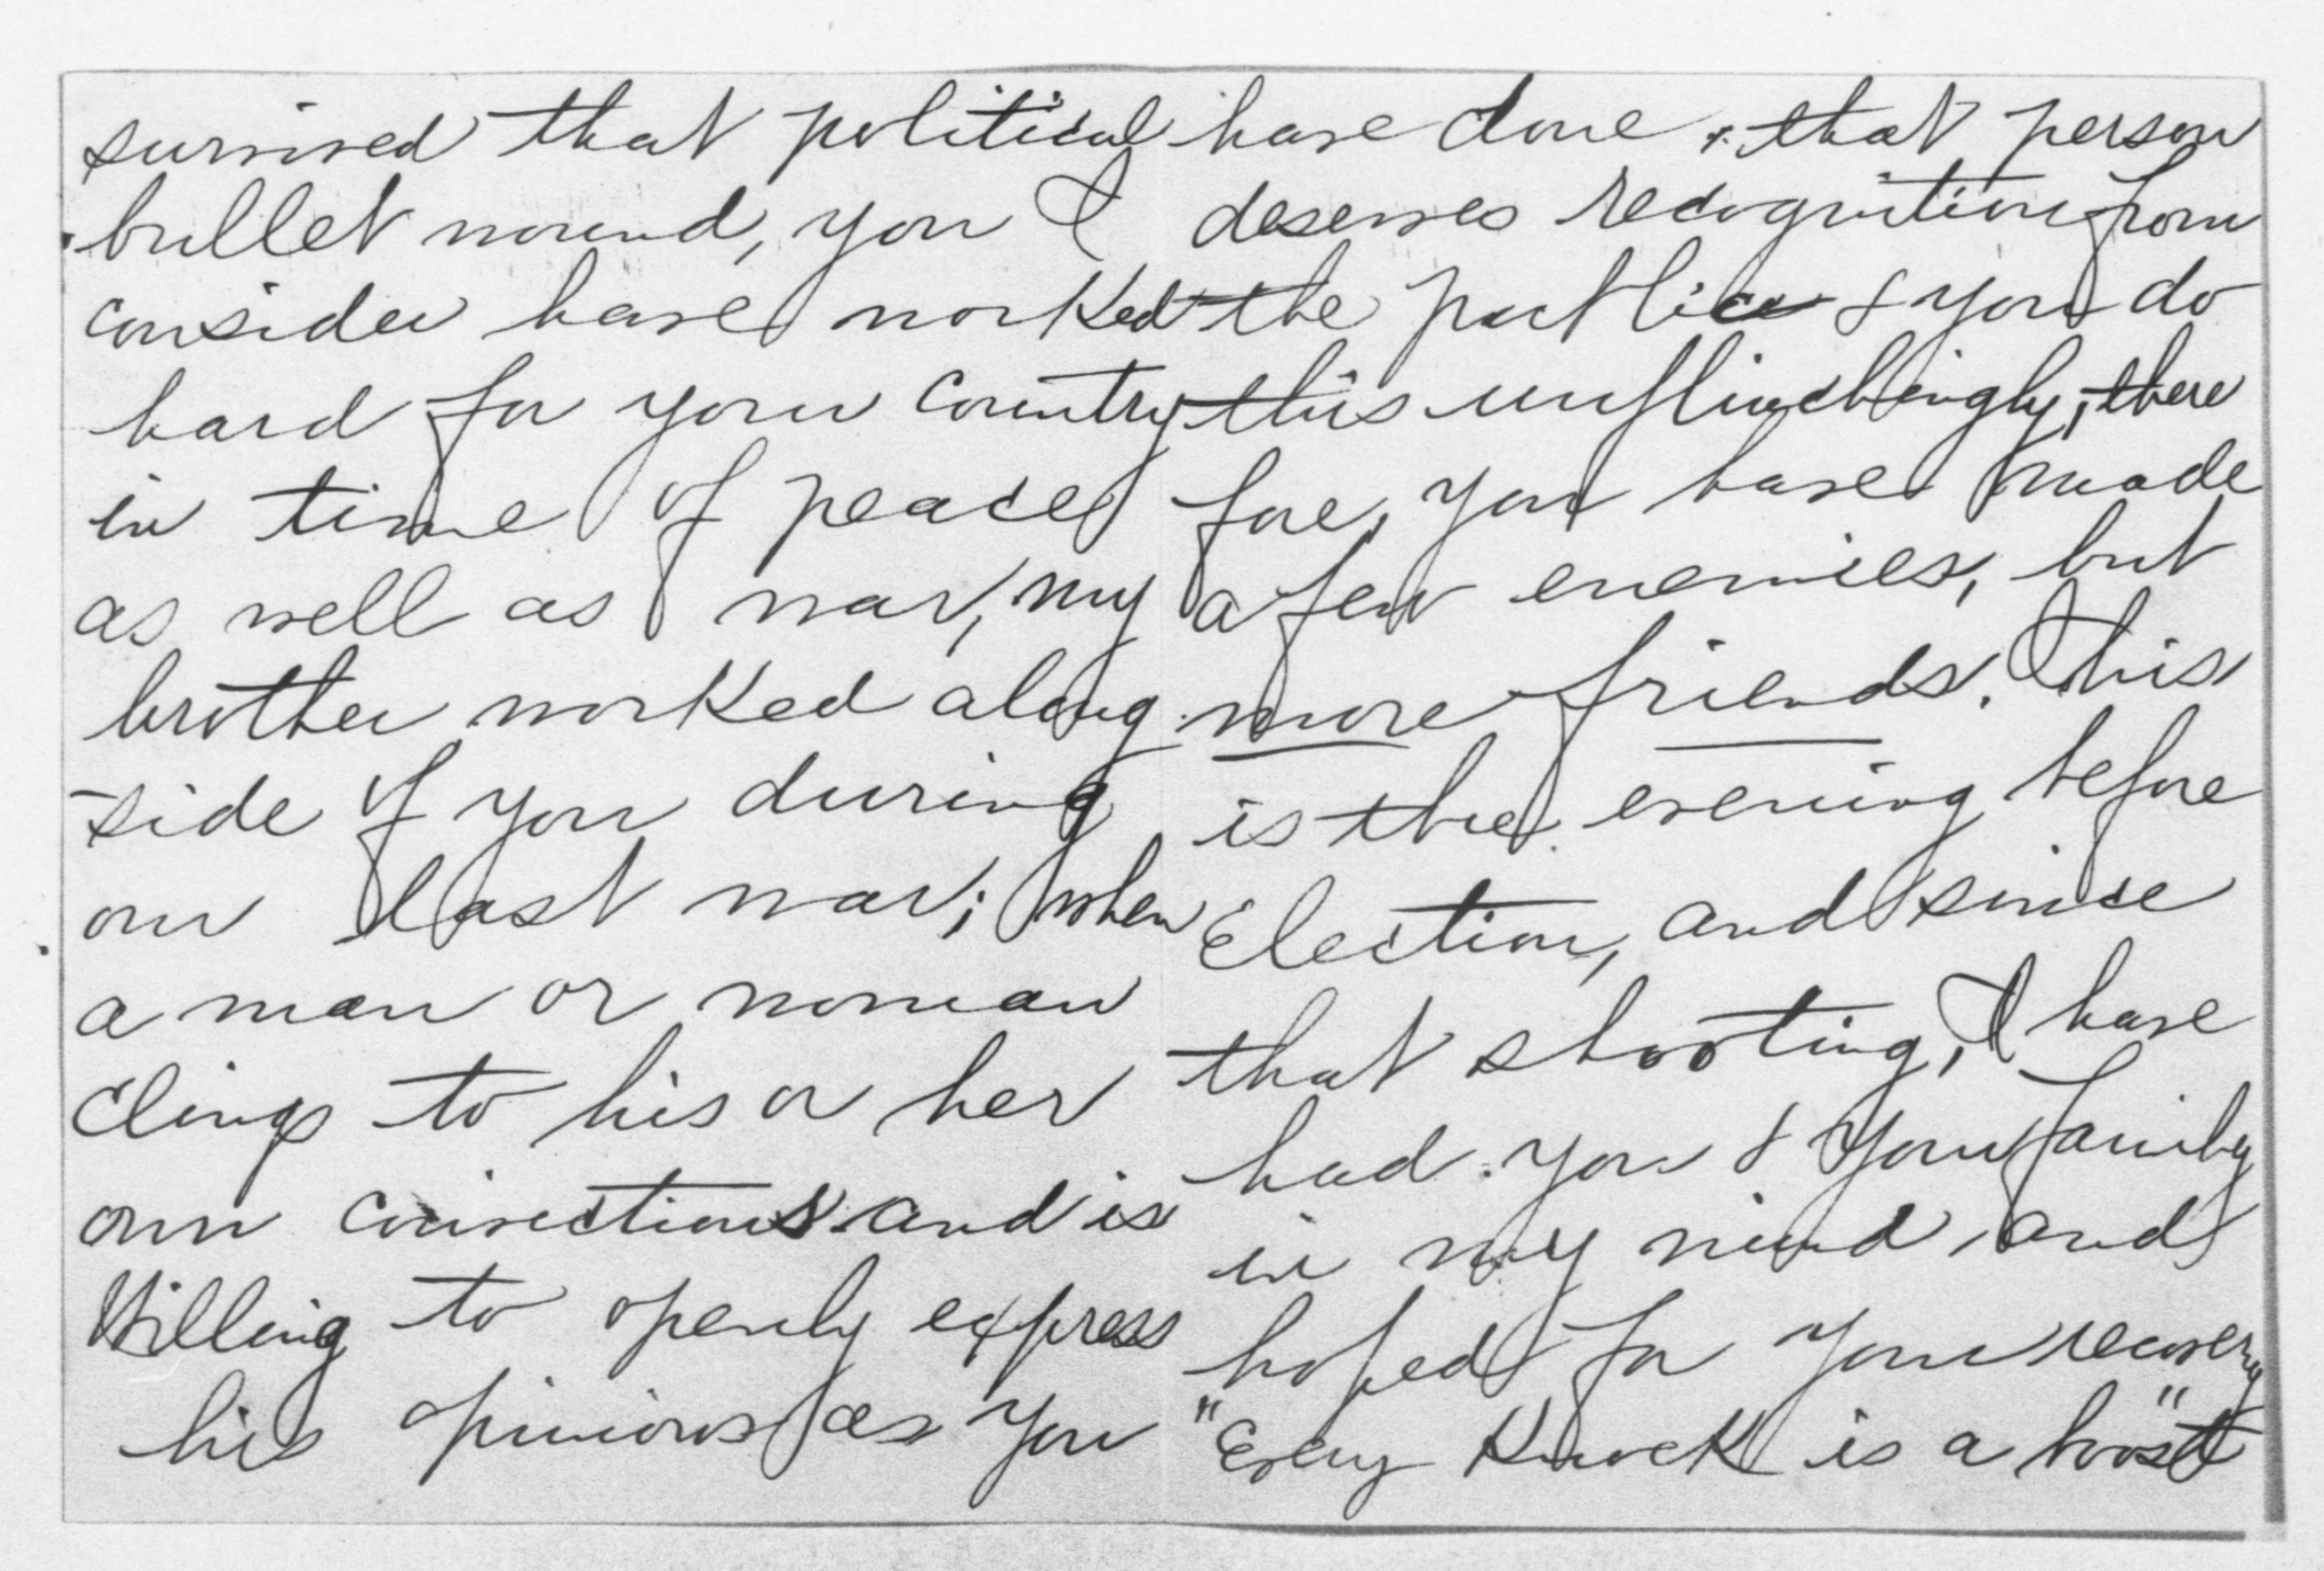 survived that political
bullet wound, you I
consider have worked
hard for your country
in time of peace
as well as war, my
brother worked along
-side of you during
our last war; when
a man or woman
clings to his or her
own convictions and is
Willing to openly express
his opinions as you
have done, that person
deserves recognition from
the public & you do
this unflinchingly, there
fore, you have made
a few enemies, but
more friends. This
is the evening before
Election, and since
that shooting, I have
had you & your family
in my mind, and
hoped for your recovery
"Every Knock is a boost"